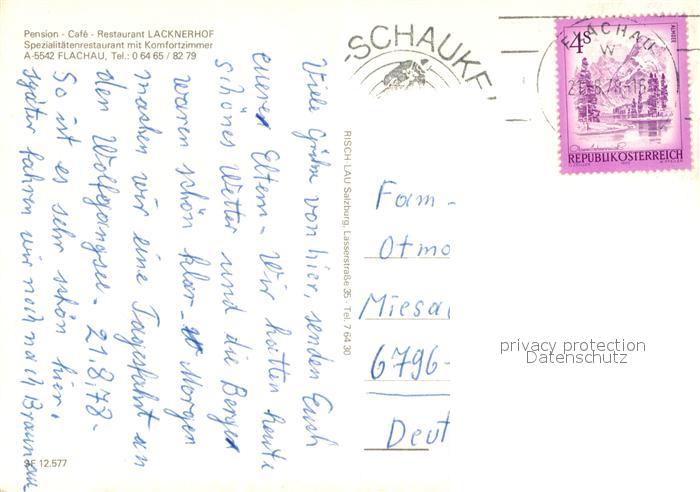 Pension - Café - Restaurant LACKNERHOF
Spezialitätenrestaurant mit Komfortzimmer
A-5542 FLACHAU, Tel.: 0 64 65 / 82 79
Viele Grüße von hier, senden Euch
euere Eltern - Wir hatten heute
schönes Wetter und die Berge
waren schön klar - Morgen
machen wir eine Tagesfahrt an
den Wolfgangsee - 21.8.78 -
So ist es sehr schön hier.
später fahren wir noch nach Braunau
3F 12.577
RISCH-LAU Salzburg, Lasserstraße 35 - Tel. 7 64 30
-SCHAUKE
FLACHAU
4S
ALMSEE
REPUBLIK ÖSTERREICH
Fam -
Otmo
Miesa
6796-
Deut
privacy protection
Datenschutz